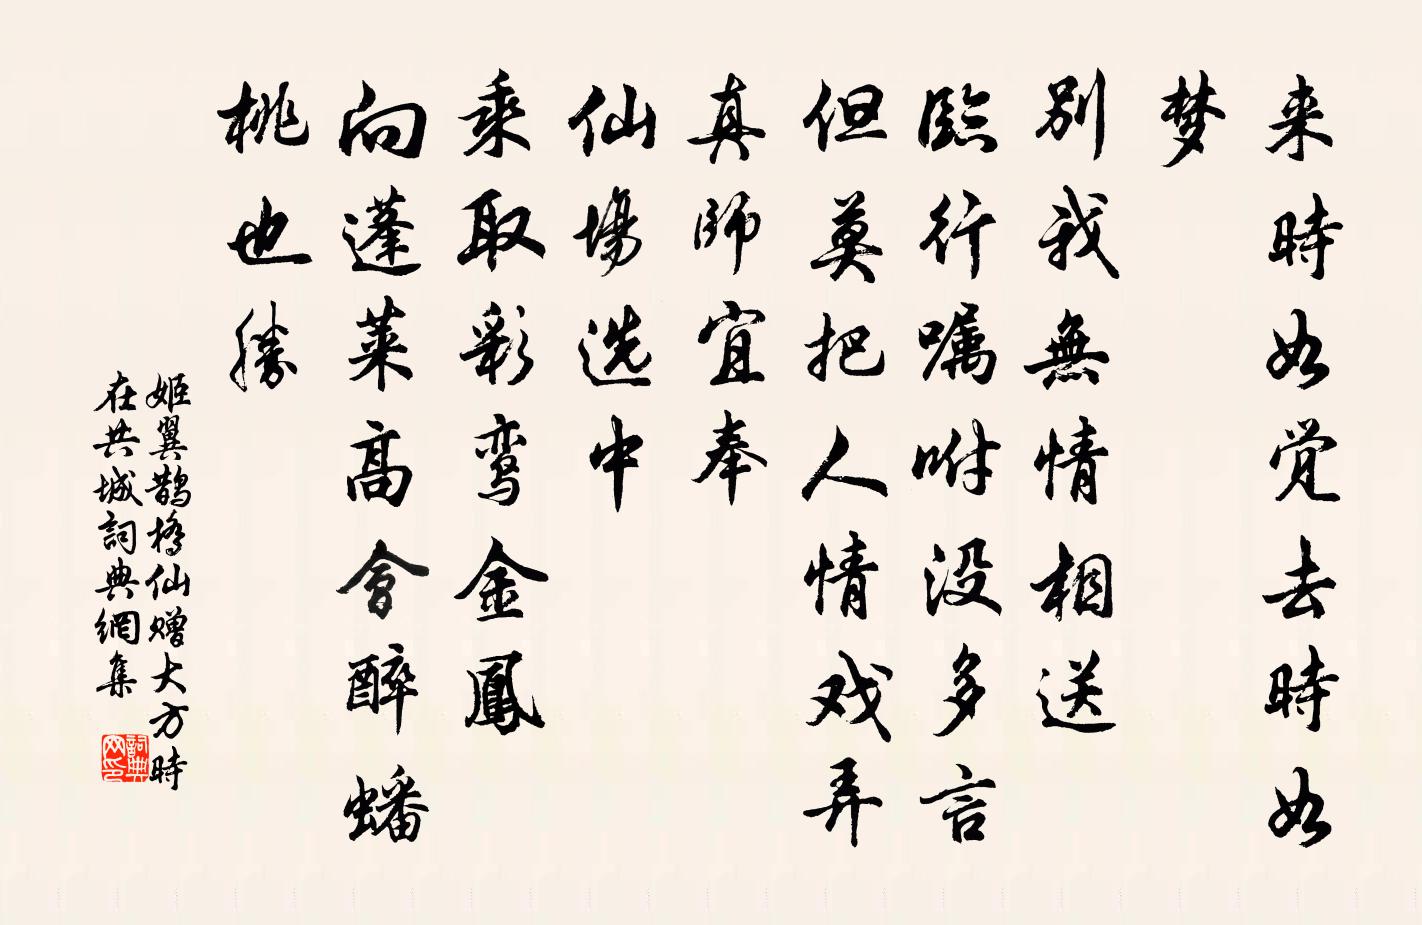 来時如觉去時如
梦
别我無情相送
臨行嘱咐没多言
但莫把人情戏弄
真師宜奉
仙場选中
乘取彩鸾金鳳
向蓬萊高會醉蟠
桃也勝
姬翼鹊橋仙赠大方時
在共城詞典網集
詞典网印